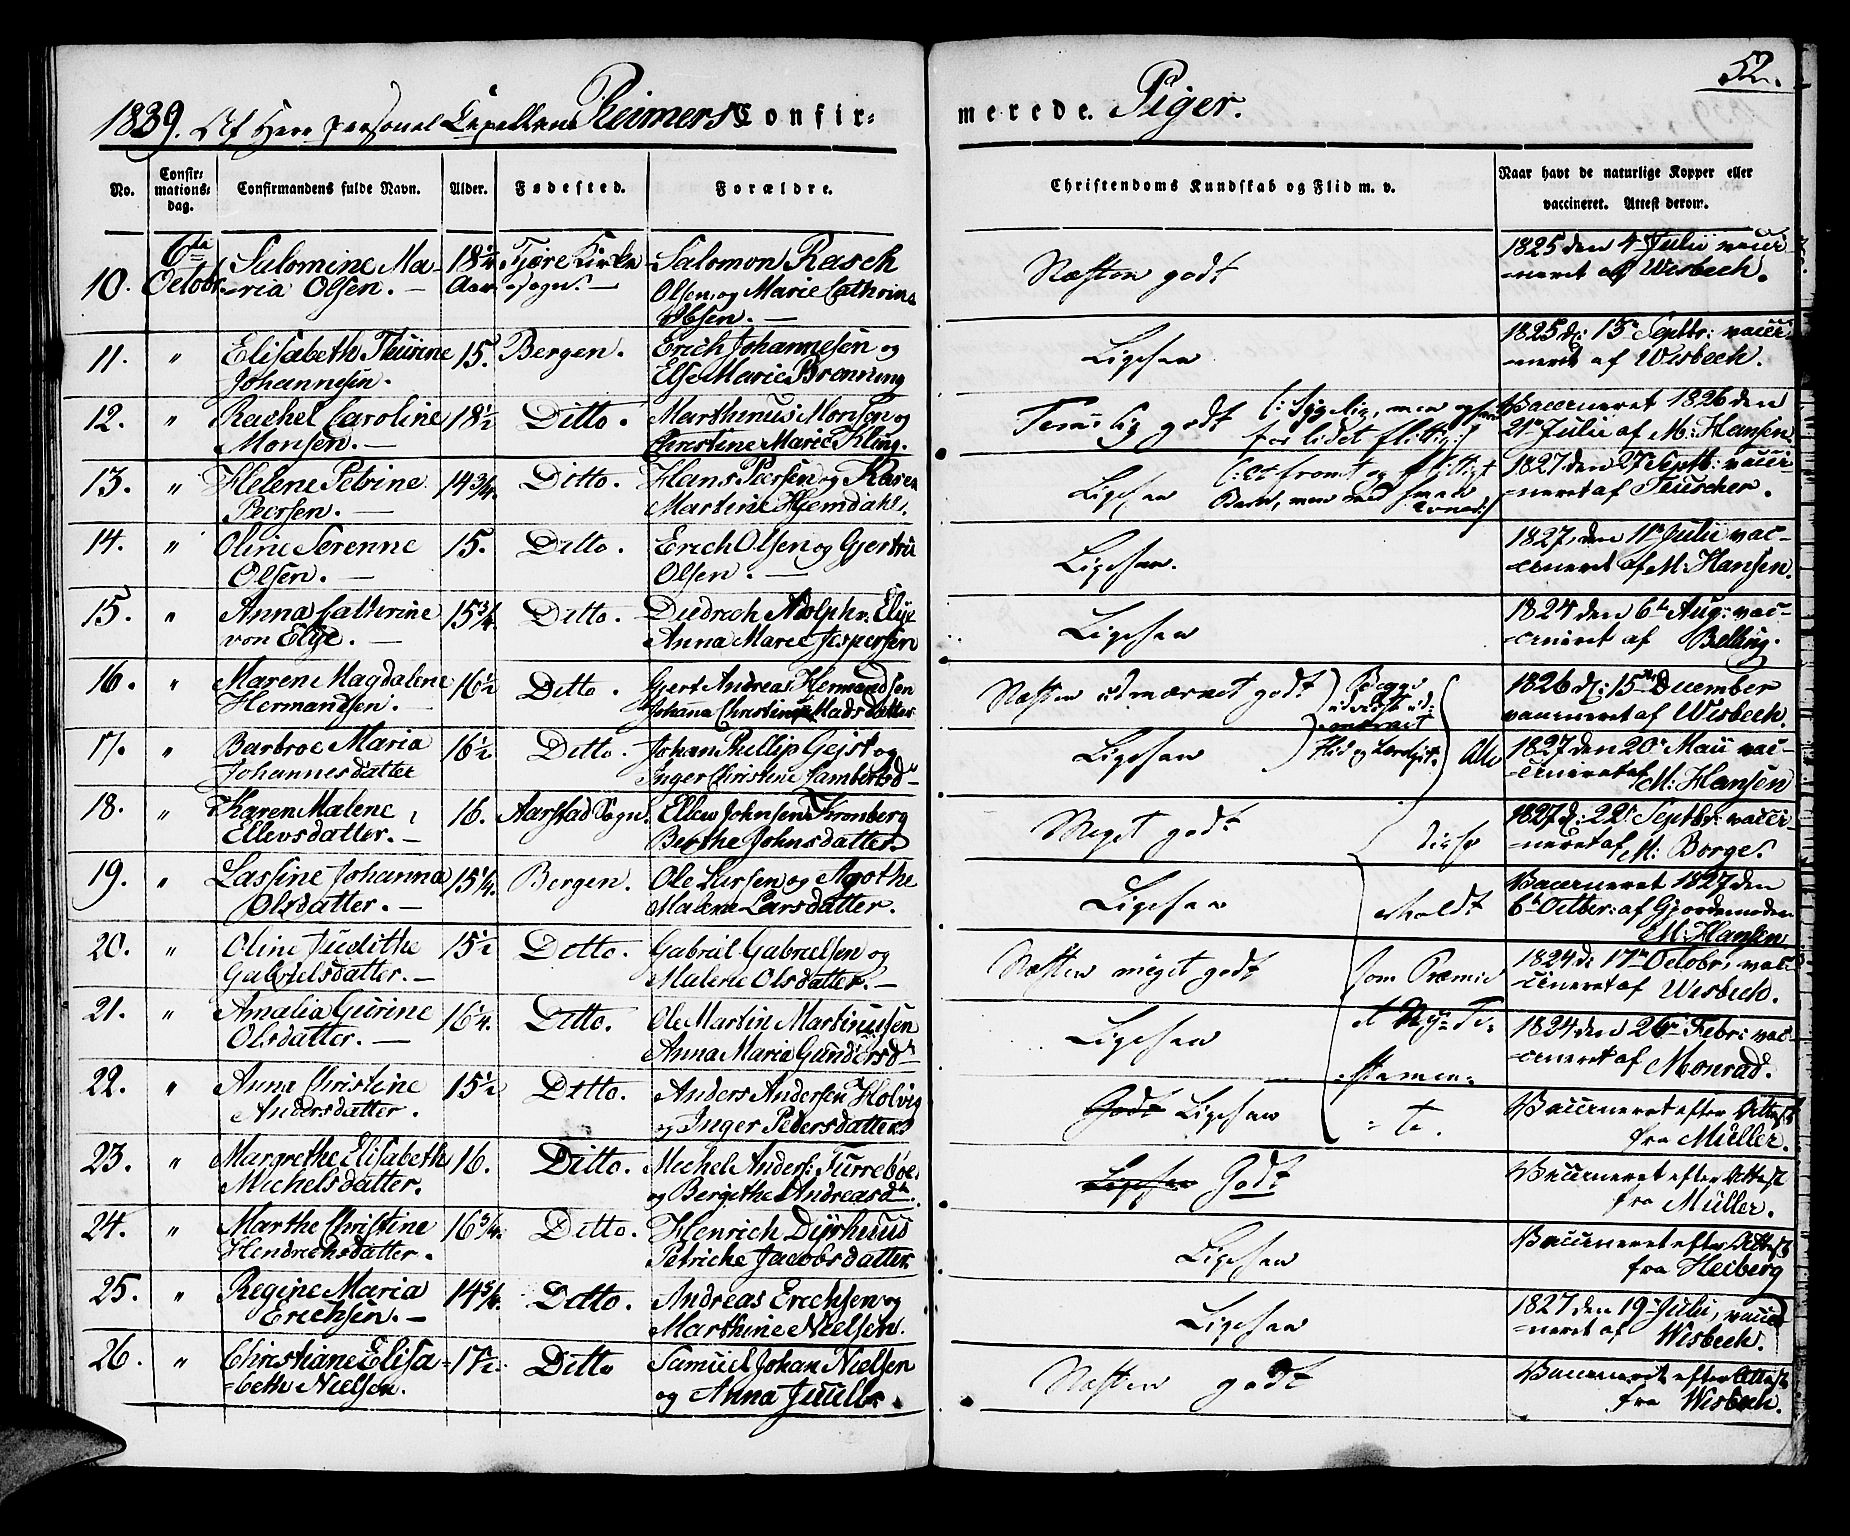 52.
1839. Af Herr personel Capellan Reimers Confirmerede Piger.
No. | Confirmationsdag. | Confirmandens fulde Navn. | Alder. | Fødested. | Forældre. | Christendoms Kundskab og Flid m. v. | Naar havt de naturlige Kopper eller vaccineret. Attest derom.
10. | 6te October | Salomine Maria Olsen. | 18½ Aar | Tjøre Kirkesogn. | Salomon Rasch Olsen og Marie Cathrine Ibsen. | Næsten godt | 1825 den 4 Julii vaccineret af Wisbech.
11. | " | Elisabeth Thurine Johannesen. | 15. | Bergen. | Erich Johannesen og Else Marie Brønning | Ligesaa | 1825 d: 13 Septbr: vaccineret af Wisbech.
12. | " | Rachel Caroline Monsen. | 18½ | Ditto. | Marthinus Monsen og Christine Marie Kling. | Temelig godt (: Sygelig, men ogsaa for lidet flittig :) | Vaccineret 1826 den 21 Julii af M: Hansen
13. | " | Helene Petrine Peersen. | 14¾. | Ditto. | Hans Peersen og Karen Martine Hjemdahl. | Ligesaa (: et fromt og flittigt Barn, men med smaa Evner :) | 1827 den 27 Septb: vaccineret af Teuscher.
14. | " | Oline Serenne Olsen. | 15. | Ditto. | Erich Olsen og Gjertru Olsen. | Ligesaa. | 1827, den 11te Julii vaccineret af M: Hansen.
15. | " | Anna Catherine von Elye. | 15¾. | Ditto. | Diedrich Adolph v: Elye Anna Marie Jespersen | Ligesaa | 1824 den 6te Aug: vaccineret af Belling.
16. | " | Maren Magdalene Hermandsen. | 16½ | Ditto. | Gjert Andreas Hermandsen Johanna Christine Madsdatter | Næsten udmærket godt | 1826 d: 15 December vaccineret af Wisbech.
17. | " | Barbroe Maria Johannesdatter | 16½ | Ditto. | Johan Phillip Gejst og Inger Christine Lambertsd. | Ligesaa | 1827 den 20 Maii vaccineret af M: Hansen
Begge udviist udmærket Flid og Lærelyst.
18. | " | Karen Malene Ellevsdatter. | 16. | Aarstad Sogn. | Ellew Johnsen Kronberg Berthe Johnsdatter. | Meget godt | 1827 d: 22 Septbr: vaccineret af M: Borge.
19. | " | Lassine Johanna Olsdatter. | 15¼. | Bergen. | Ole Larsen og Agothe Malene Larsdatter. | Ligesaa | Vaccineret 1827 den 6te Octbr: af Gjordemoden M: Hansen
20. | " | Oline Judithe Gabrielsdatter. | 15½ | Ditto. | Gabriel Gabrielsen og Malene Olsdatter. | Næsten meget godt | 1824 d: 17 Octobr: vaccineret af Wisbech.
21. | " | Amalia Gurine Olsdatter. | 16¼. | Ditto. | Ole Martin Martinussen Anna Maria Gundersd. | Ligesaa | 1824 den 26 Febr: vaccineret af Monrad.
22. | " | Anna Christine Andersdatter. | 15½ | Ditto. | Anders Andersen Holvig og Inger Pedersdatter | Godt Ligesaa | Vaccineret efter Attest fra Müller.
Alle disse erholdt som Præmie et Nye Testamente.
23. | " | Margrethe Elisabeth Michelsdatter. | 16. | Ditto. | Michel Anders: Turrebøe og Bergithe Andreasd. | Ligesaa Godt | Vaccineret efter Attest fra Müller.
24. | " | Marthe Christine Hendrichsdatter. | 16¾. | Ditto. | Henrich Dyrhuus Petriche Jacobsdatter | Ligesaa | Vaccineret efter Attest fra Heiberg
25. | " | Regine Maria Erichsen. | 14¾ | Ditto. | Andreas Erichsen og Marthine Nielsen. | Ligesaa | 1827 den 19 Juli, vaccineret af Wisbech.
26. | " | Christiane Elisabeth Nielsen. | 17½. | Ditto | Samuel Johan Nielsen og Anna Juell. | Næsten godt | Vaccineret efter Attest fra Wisbech.